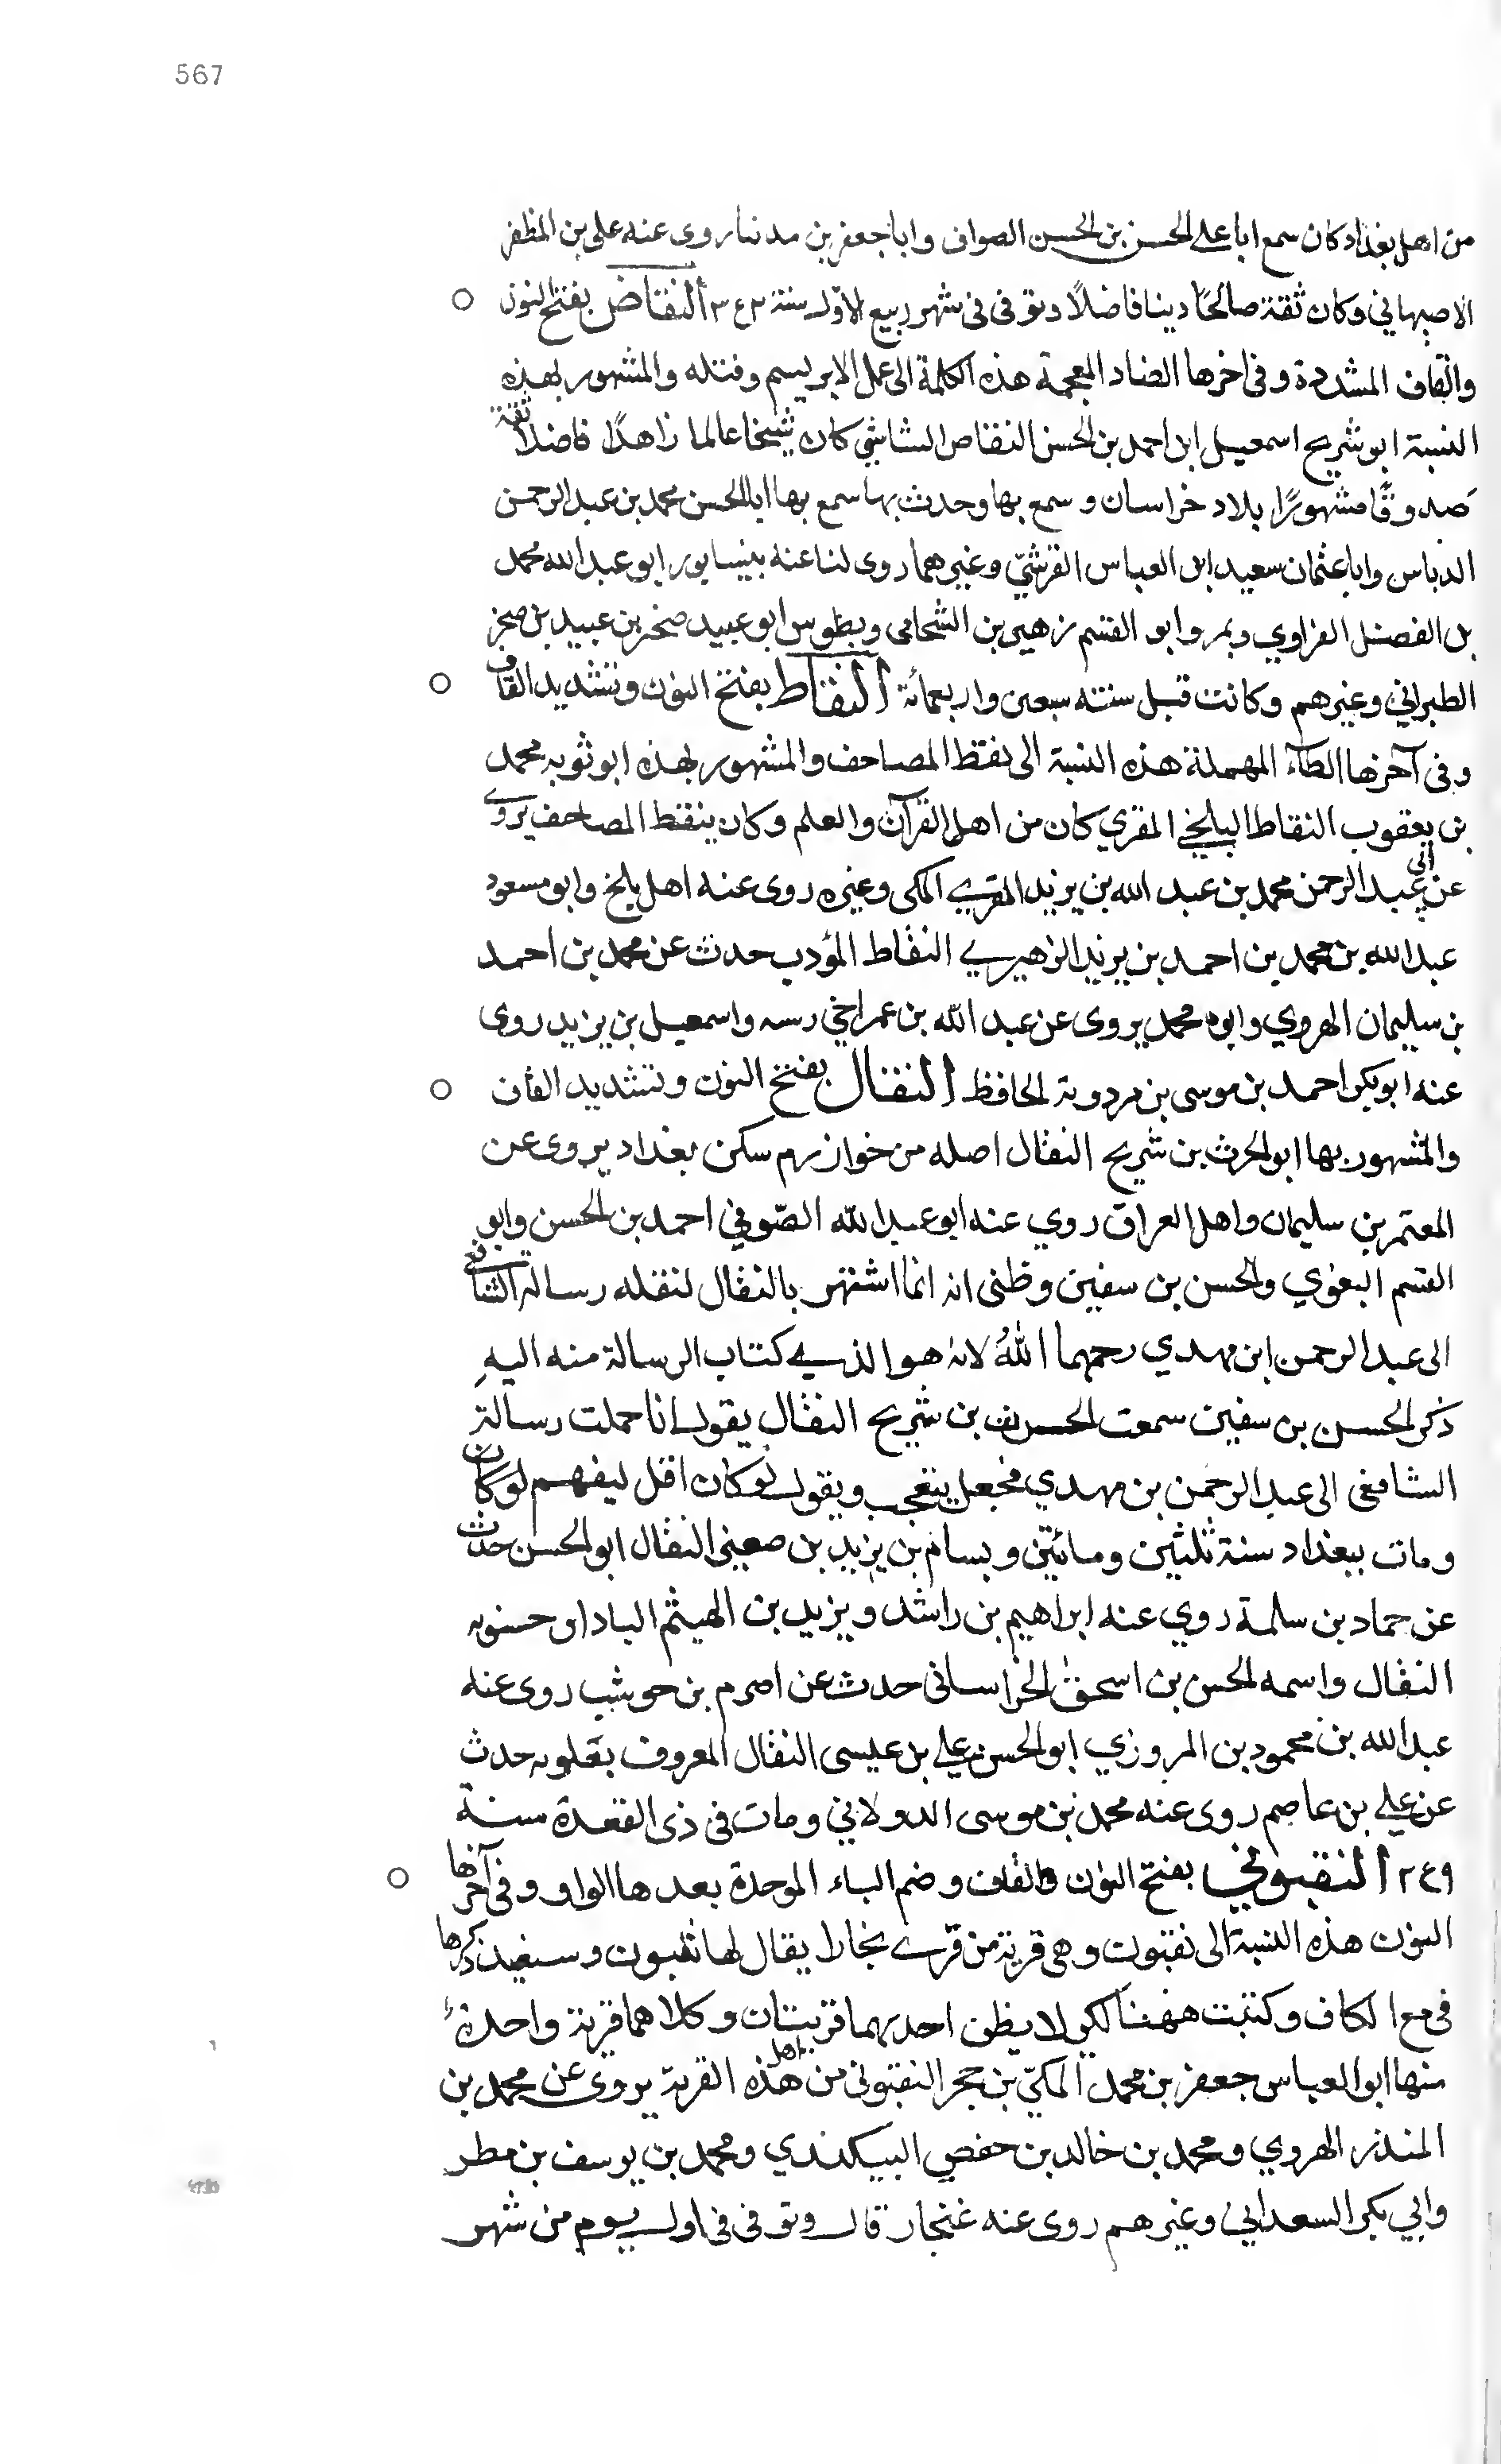 567
من اهل بغداد كان سمع ابا علي الحسن بن الحسن الصواف وابا جعفر بن روى عنه علي بن المظفر
الاصبهاني وكان ثقة صالحًا دينا فاضلًا وتوفى فى شهر ربيع الاول سنة ٣٤٣ النقاض بفتح النون
والقاف المشددة وفى اخرها الضاد المعجمة هذه الكلمة الى عمل الابريسم وفتله والمشهور بهذه
النسبة ابو شريح اسمعيل ابن احمد بن الحسن النقاض الشاشي كان شيخا عالما زاهدًا فاضلا ثقة
صدوقًا مشهورًا بلاد خراسان وسمع بها وحدث بها سمع بها ابا الحسن محمد بن عبد الرحمن
الدباس وابا عثمان سعيد ابن العباس القرشيّ وغيرهما روى لنا عنه بنيسابور ابو عبد الله محمد
بن الفضل الفراوي وبمرو ابو القسم زهير بن الشحامى وبطوس ابو عبيد صخر بن عبيد بن صخر
الطبراني وغيرهم وكانت قبل سنته سبعين واربعمائة النقاط بفتح النون وتشديد القاف
وفى آخرها الطآء المهملة هذه النسبة الى نقط المصاحف والمشهور بهذه ابو ثوبه محمد
بن يعقوب النقاط البلخي المقري كان من اهل القرآن والعلم وكان ينقط المصاحف يروي
عن ابي عبد الرحمن محمد بن عبد الله بن يزيد المقري المكى وغيره روى عنه اهل بلخ وابو مسعود
عبد الله بن محمد بن احمد بن يزيد الزهيري النقاط المؤدب حدث عن محمد بن احمد
بن سليمان الهروي وابوه محمد يروى عن عبد الله بن عمر اخي رسه واسمعيل بن يزيد روى
عنه ابو بكر احمد بن موسى بن مردوية الحافظ النقال بفتح النون وتشديد القاف
والمشهور بها ابو الحرث بن شريح النقال اصله من خوارزم سكن بغداد يروى عن
المعتمر بن سليمان واهل العراق روي عنه ابو عبد الله الصّوفي احمد بن الحسن وابو
القسم البغوي والحسن بن سفين وظنى انه انما اشتهر بالنقال لنقله رسالة الشافعي
الى عبد الرحمن ابن مهدي رحمهما اللهُ لانه هو الذي كتاب الرسالة منه اليهِ
ذكر الحسن بن سفين سمعت الحرث بن شريح النقال يقول انا حملت رسالة
الشافعى الى عبد الرحمن بن مهدي فجعل يتعجب ويقول لو كان اقل ليفهم لو كان
ومات ببغداد سنة ثلثين ومائتين وبسام بن يزيد بن صغير النقال ابو الحسن حدث
عن حماد بن سلمة روي عنه ابراهيم بن راشد ويزيد بن الهيثم البادا وحسنويه
النقال واسمه الحسن بن اسحق الخراسانى حدث عن اصرم بن حوشب روى عنه
عبد الله بن محمود بن المروزي ابو الحسن علي بن عيسى النقال المعروف بعلويه حدث
عن علي بن عاصم روى عنه محمد بن موسى الدولابي ومات فى ذى القعدة سنة
٢٤٩ النقبوني بفتح النون والقاف وضم الباء الموحدة بعدها الواو وفى آخرها
النون هذه النسبة الى نقبون وهى قرية من قرى بخارا يقال لها نقبون وسنعيد ذكرها
فى مع الكاف وكتبت ههنا لكي لا يظن احد بهما قريتان وكلاهما قرية واحدة
منها ابو العباس جعفر بن محمد المكيّ بن حجر النقبونى من اهل هذه القرية يروى عن محمد بن
المنذر الهروي ومحمد بن خالد بن حفص البيكندي ومحمد بن يوسف بن مطر
وابي بكر السعدانى وغيرهم روى عنه غنجار قال وتوفى فى اول يوم من شهر